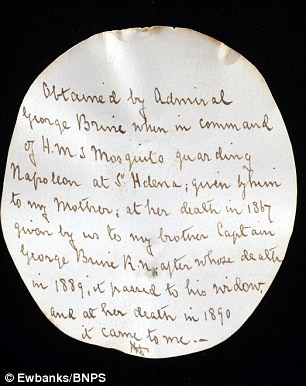 Obtained by Admiral
George Brine when in command
of H.M.S Mosquito guarding
Napoleon at St Helena; given by him
to my Mother; at her death in 1867
given by us to my brother Captain
George Brine R.N. after whose death
in 1889, it passed to his widow,
and at her death in 1890
it came to me.—
© Ewbanks/BNPS